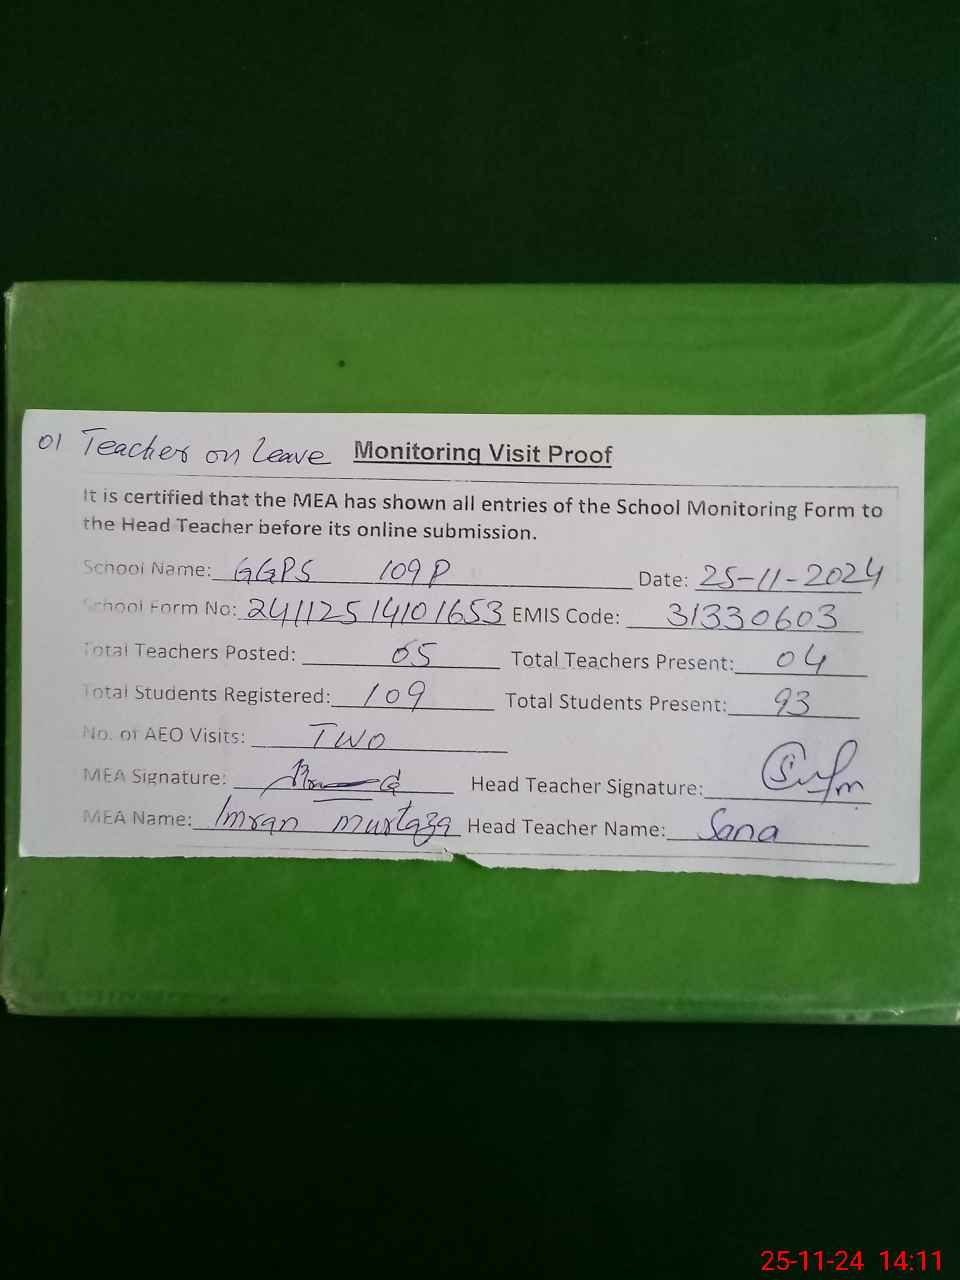 01 Teacher on Leave Monitoring Visit Proof
It is certified that the MEA has shown all entries of the School Monitoring Form to
the Head Teacher before its online submission.
School Name: GGPS 109P Date: 25-11-2024
School Form No: 24112514101653 EMIS Code: 31330603
Total Teachers Posted: 05 Total Teachers Present: 04
Total Students Registered: 109 Total Students Present: 93
No. of AEO Visits: Two
MEA Signature: Head Teacher Signature:
MEA Name: Imran murtaza Head Teacher Name: Sana
25-11-24 14:11